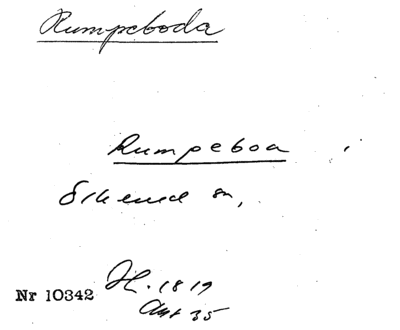 Rumpeboda
Rumpeboa
Skened sn,
H. 1819
Nr 10342
Akt 35